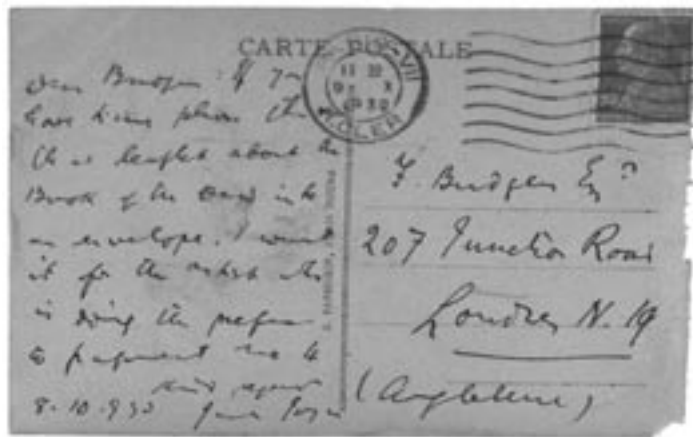 CARTE POSTALE
Dear Budgen: If you
have time please th
a leaflet about the
Book of the Dead into
an envelope. I want
it for the artist who
is doing the preface
to fragment no 4
kind regards
8.10.930 James Joyce
XVIII
11 30
9 X
1930
F. Budgen Esqre
207 Junction Road
Londres N. 19
(Angleterre)